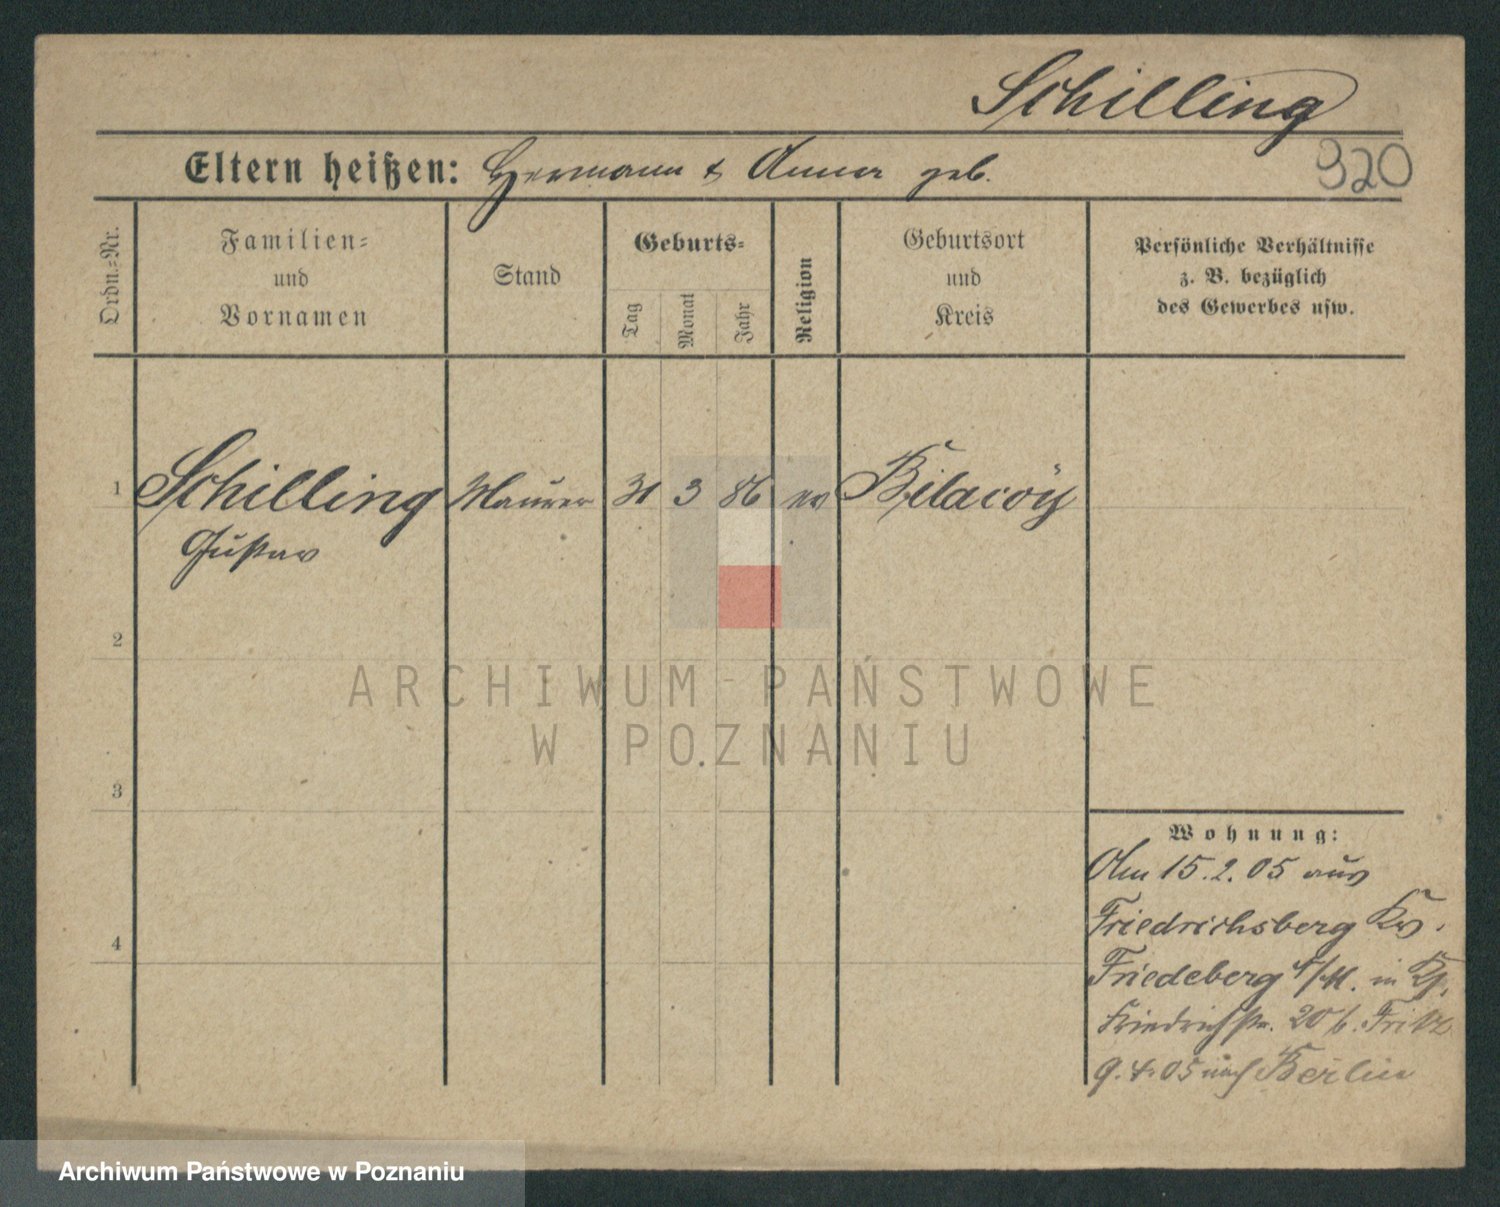 Schilling
Eltern heißen: Hermann & Anna geb.
320
Ordn.=Nr.
Familien=
und
Vornamen
Stand
Geburts=
Tag
Monat
Jahr
Religion
Geburtsort
und
Kreis
Persönliche Verhältnisse
z. B. bezüglich
des Gewerbes usw.
1 Schilling Maurer 31 3 86 ev
Gustav
2
ARCHIWUM PAŃSTWOWE
W POZNANIU
3
Wohnung:
Am 15.2.05 aus
4
Friedrichsberg Kr.
Friedeberg N/M. in
Friedrichstr. 20 b. Fritz
9.4.05 nach Berlin
Archiwum Państwowe w Poznaniu